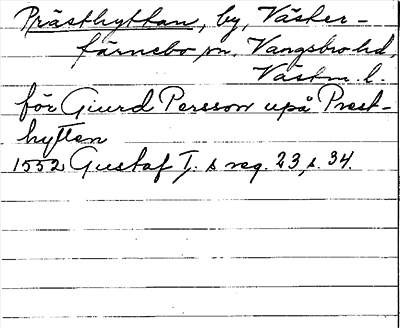 Prästhyttan, by, Väster-
färnebo sn. Vangsbro hd,
Västm. l.
för Giurd Persson upå Prest-
hytten
1552 Gustaf I. s reg. 23, s. 34.